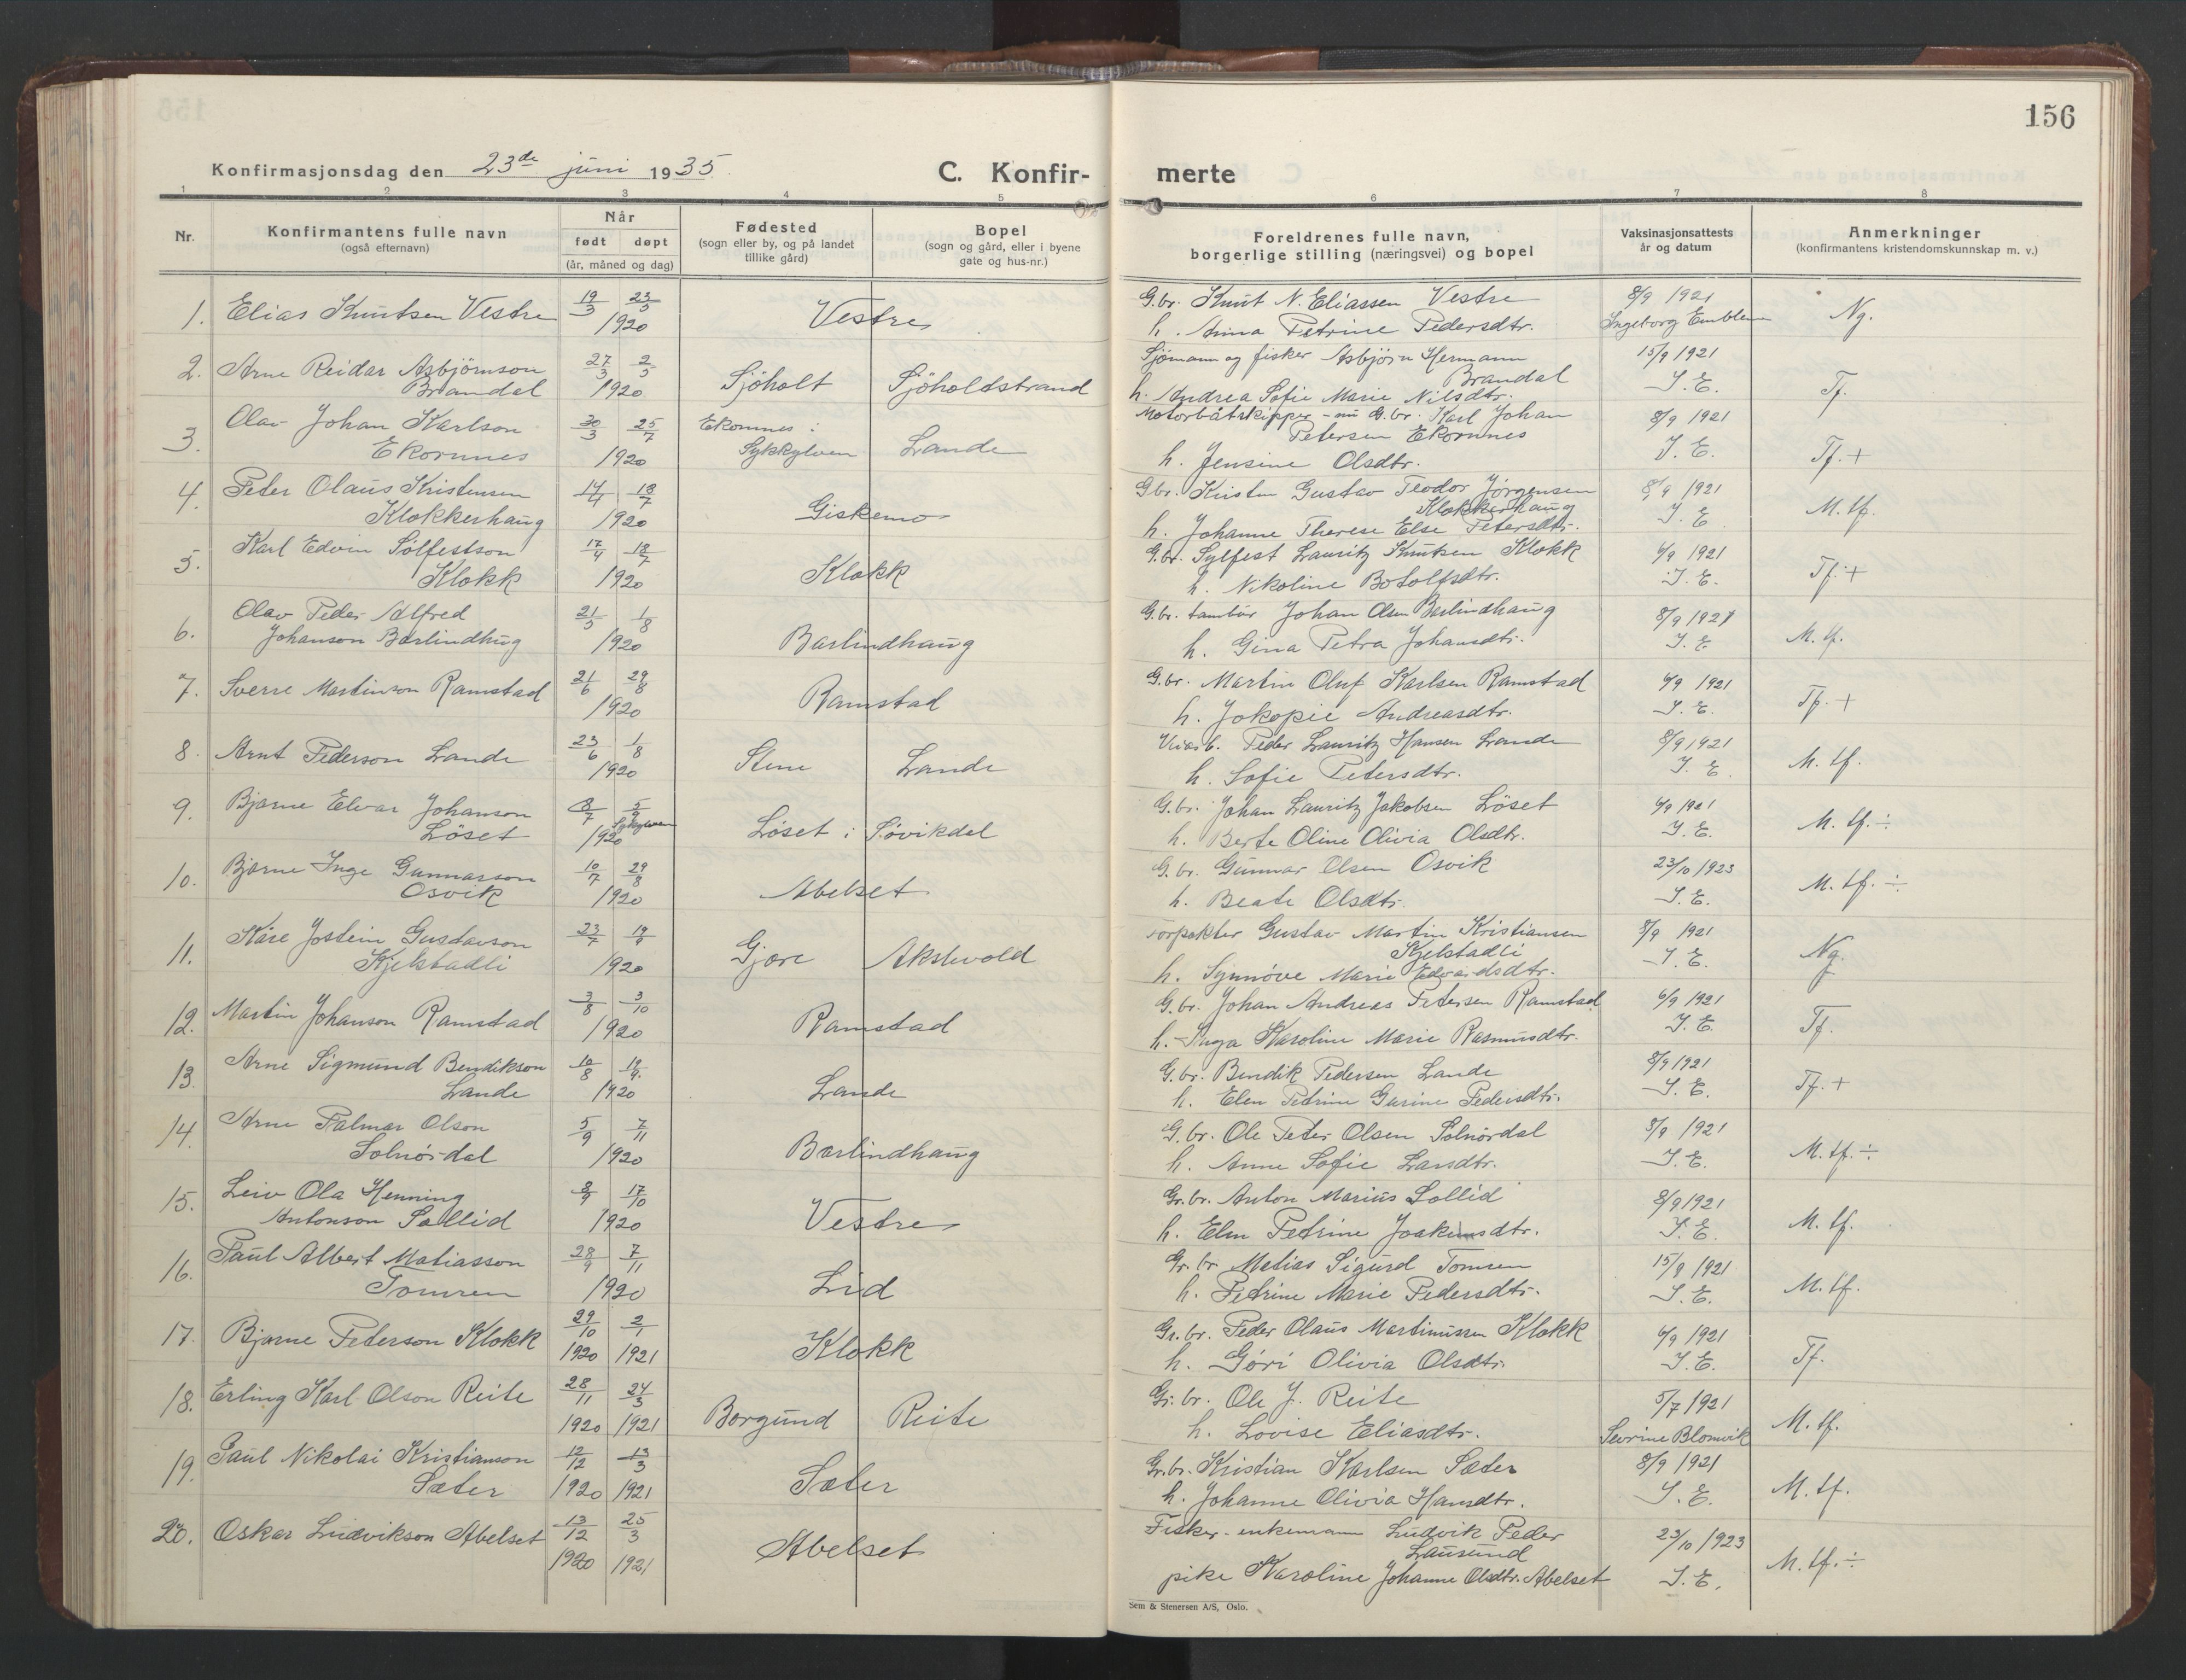 156
Konfirmasjonsdag den 23de juni 1935
C. Konfir- merte
1 2 3 4 5 6 7 8
Nr.
Konfirmantens fulle navn
(også efternavn)
Når
født døpt
(år, måned og dag)
Fødested
(sogn eller by, og på landet
tillike gård)
Bopel
(sogn og gård, eller i byene
gate og hus-nr.)
Foreldrenes fulle navn,
borgerlige stilling (næringsvei) og bopel
Vaksinasjonsattests
år og datum
Anmerkninger
(konfirmantens kristendomskunnskap m. v.)
1. Elias Knutsen Vestre 19/3 23/5 1920 Vestre
G.br. Knut N. Eliassen Vestre 8/9 1921 Ng.
h. Anna Petrine Pedersdtr. Ingeborg Emblem
2. Arne Reidar Asbjörnson 27/3 2/5
Brandal 1920 Sjöholt Sjöholdstrand
Sjömann og fisker Asbjörn Hermann 15/9 1921
Brandal I. E. Tf.
h. Andrea Sofie Marie Nilsdtr.
3. Olav Johan Karlson 30/3 25/7 Ekornnes i
Ekornnes 1920 Sykkylven Lande
Motorbåtskipper - nu G.br. Karl Johan 8/9 1921
Petersen Ekornnes I. E. Tf. +
h. Jensine Olsdtr.
4. Peder Olaus Kristensen 14/4 18/7
Klokkerhaug 1920 Giskemo
G.br. Kristen Gustav Teodor Jørgensen 8/9 1921
Klokkerhaug I. E. M. tf.
h. Johanne Therese Else Petersdtr.
5. Karl Edvin Sölfestson 17/4 18/7
Klokk 1920 Klokk
G.br. Sylfest Lauritz Knutsen Klokk 6/9 1921
h. Nikoline Botolfsdtr. I. E. Tf. +
6. Olav Peder Alfred 21/5 1/8
Johanson Barlindhug 1920 Barlindhaug
G.br. tambur Johan Olsen Barlindhaug 8/9 1921
h. Gina Petra Johansdtr. I. E. M. tf.
7. Sverre Martinson Ramstad 21/6 29/8 1920 Ramstad
G.br. Martin Oluf Karlsen Ramstad 6/9 1921
h. Jokopie Andreasdtr. I. E. Tf. +
8. Arnt Pederson Lande 23/6 1/8 1920 Stene Lande
Peder Lauritz Hansen Lande 8/9 1921
h. Sofie Petersdtr. I. E. M. tf.
9. Bjarne Elvar Johanson 8/7 5/9 Sykkylven
Löset 1920 Löset i Sövikdal
G.br. Johan Lauritz Jakobsen Löset 6/9 1921
h. Berte Oline Olivia Olsdtr. I. E. M. tf. ÷
10. Bjarne Inge Gunnarson 10/7 29/8
Osvik 1920 Abelset
G.br. Gunnar Olsen Osvik 23/10 1923
h. Beate Olsdtr. I. E. M. tf. ÷
11. Kåre Jostein Gustavson 23/7 19/9
Kjelstadli 1920 Gjære Akslevold
Forpakter Gustav Martin Kristiansen 8/9 1921
Kjelstadli I. E. Ng.
h. Synnöve Marie Edvardsdtr.
12. Martin Johanson Ramstad 3/8 3/10 1920 Ramstad
G.br. Johan Andreas Petersen Ramstad 6/9 1921
h. Inga Karoline Marie Rasmusdtr. I. E. Tf.
13. Arne Sigmund Bendikson 10/8 19/9.
Lande 1920 Lande
G.br. Bendik Pedersen Lande 8/9 1921
h. Elen Petrine Gurine Pedersdtr. I. E. Tf. +
14. Arne Palmar Olson 5/9 7/11
Solnördal 1920 Barlindhaug
G.br. Ole Peter Olsen Solnördal 8/9 1921
h. Anne Sofie Larsdtr. I. E. M. tf. ÷
15. Leiv Ola Henning 8/9 17/10
Antonson Sollid 1920 Vestre
Gr.br. Anton Marius Sollid 8/9 1921
h. Elen Petrine Joakimsdtr. I. E. M. tf.
16. Paul Albert Matiasson 28/9 7/11
Tomren 1920 Lid
Gr.br. Matias Sigurd Tomren 15/9 1921
h. Petrine Marie Pedersdtr. I. E. M. tf.
17. Bjarne Pederson Klokk 29/10 1920 2/1 1921 Klokk
Gr.br. Peder Olaus Martinussen Klokk 6/9 1921
h. Göri Olivia Olsdtr. I. E. Tf.
18. Erling Karl Olson Reite 28/11 1920 24/3 1921 Borgund Reite
Gr.br. Ole J. Reite 5/7 1921
h. Lovise Eliasdtr. Sevrine Blomvik M. tf.
19. Paul Nikolai Kristianson 12/12 13/3
Sæter 1920 1921 Sæter
Gr.br. Kristian Karlsen Sæter 8/9 1921
h. Johanne Olivia Hansdtr. I. E. M. tf.
20. Oskar Ludvikson Abelset 13/12 1920 25/3 1921 Abelset
Fisker - enkemann Ludvik Peder 23/10 1923
Lausund M. tf. ÷
pike Karoline Johanne Olsdtr. Abelset I. E.
Sem & Stenersen A/S, Oslo.